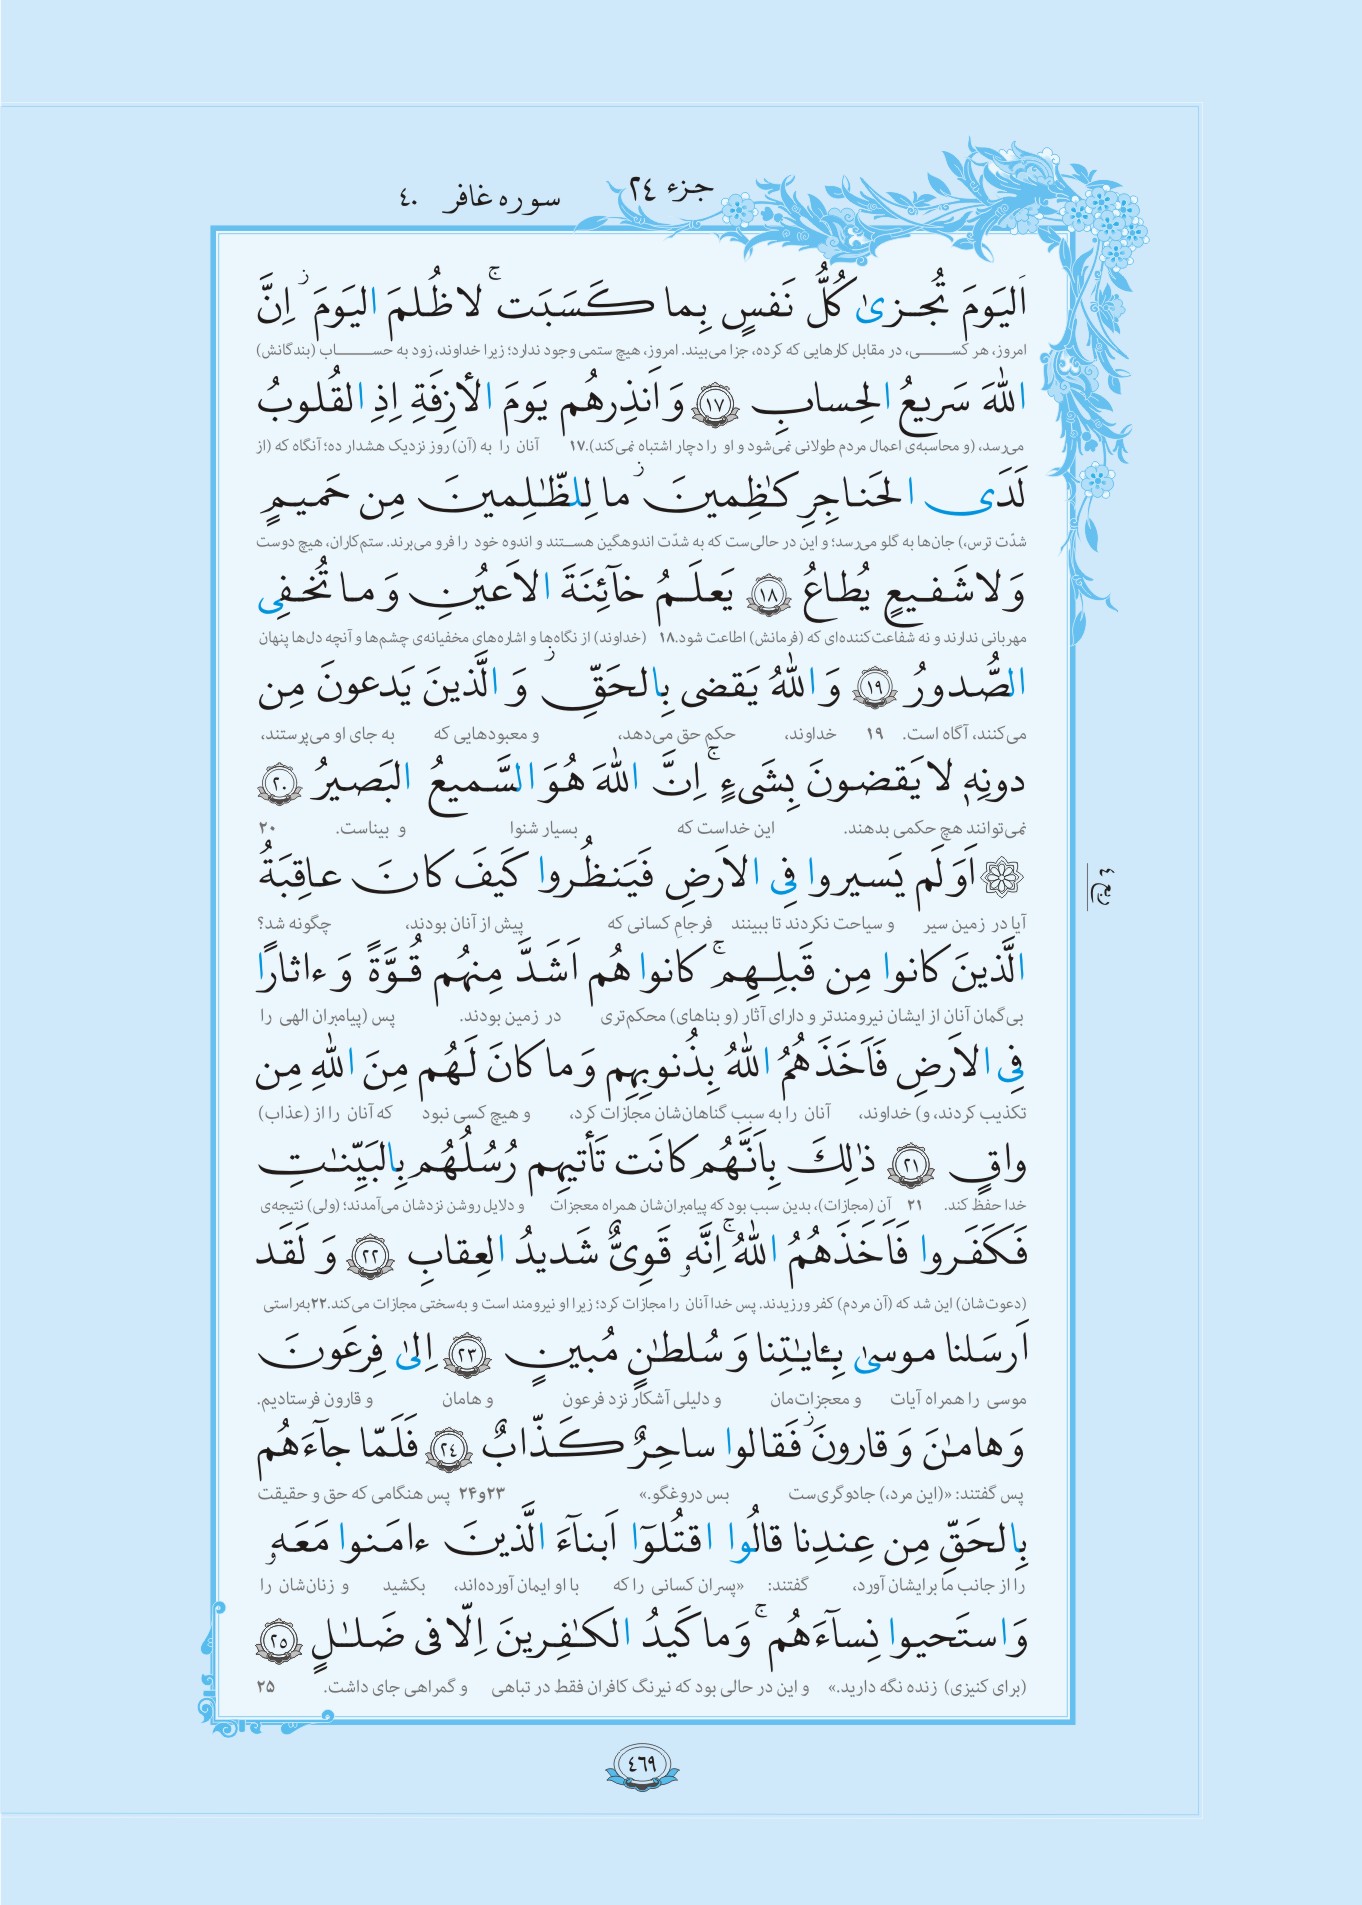 جزء ٢٤
سوره غافر ٤٠
اَليَومَ تُجـزىٰ كُلُّ نَفسٍ بِما كَسَبَت ۚ لا ظُلمَ اليَومَ ز اِنَّ
امروز، هر کسی، در مقابل کارهایی که کرده، جزا می‌بیند. امروز، هیچ ستمی وجود ندارد؛ زیرا خداوند، زود به حساب (بندگانش)
اللهَ سَريعُ الحِسابِ ١٧ وَ اَنذِرهُم يَومَ الأزِفَةِ اِذِ القُلوبُ
می‌رسد، (و محاسبه‌ی اعمال مردم طولانی نمی‌شود و او را دچار اشتباه نمی‌کند).۱۷ آنان را به (آن) روز نزدیک هشدار ده؛ آنگاه که (از
لَدَى الحَناجِرِ كـٰظِمينَ ز ما لِلظّـٰلِمينَ مِن حَميمٍ
شدّت ترس،) جان‌ها به گلو می‌رسد؛ و این در حالی‌ست که به شدّت اندوهگین هستند و اندوه خود را فرو می‌برند. ستم‌کاران، هیچ دوست
وَ لا شَفيعٍ يُطاعُ ١٨ يَعلَمُ خآئِنَةَ الاَعيُنِ وَ ما تُخفِى
مهربانی ندارند و نه شفاعت‌کننده‌ای که (فرمانش) اطاعت شود.۱۸ (خداوند) از نگاه‌ها و اشاره‌های مخفیانه‌ی چشم‌ها و آنچه دل‌ها پنهان
الصُّدورُ ١٩ وَ اللهُ يَقضى بِالحَقِّ ز وَ الَّذينَ يَدعونَ مِن
می‌کنند، آگاه است. ۱۹ خداوند، حکم حق می‌دهد، و معبودهایی که به جای او می‌پرستند،
دونِهٖ لا يَقضونَ بِشَىءٍ ۚ اِنَّ اللهَ هُوَ السَّميعُ البَصيرُ ٢٠
نمی‌توانند هچ حکمی بدهند. این خداست که بسیار شنوا و بیناست. ۲۰
۞ اَوَ لَم يَسيروا فِى الاَرضِ فَيَنظُروا كَيفَ كانَ عاقِبَةُ
آیا در زمین سیر و سیاحت نکردند تا ببینند فرجامِ کسانی که پیش از آنان بودند، چگونه شد؟
ربع ٤
الَّذينَ كانوا مِن قَبلِهِم ۚ كانوا هُم اَشَدَّ مِنهُم قُوَّةً وَ ءاثارًا
بی‌گمان آنان از ایشان نیرومندتر و دارای آثار (و بناهای) محکم‌تری در زمین بودند. پس (پیامبران الهی را
فِى الاَرضِ فَاَخَذَهُمُ اللهُ بِذُنوبِهِم وَ ما كانَ لَهُم مِنَ اللهِ مِن
تکذیب کردند، و) خداوند، آنان را به سبب گناهان‌شان مجازات کرد، و هیچ کسی نبود که آنان را از (عذاب)
واقٍ ٢١ ذٰلِكَ بِاَنَّهُم كانَت تَأتيهِم رُسُلُهُم بِالبَيِّنـٰتِ
خدا حفظ کند. ۲۱ آن (مجازات)، بدین سبب بود که پیامبران‌شان همراه معجزات و دلایل روشن نزدشان می‌آمدند؛ (ولی) نتیجه‌ی
فَكَفَروا فَاَخَذَهُمُ اللهُ ۚ اِنَّهٗ قَوِىٌّ شَديدُ العِقابِ ٢٢ وَ لَقَد
(دعوت‌شان) این شد که (آن مردم) کفر ورزیدند. پس خدا آنان را مجازات کرد؛ زیرا او نیرومند است و به‌سختی مجازات می‌کند.۲۲به‌راستی
اَرسَلنا موسىٰ بِـٔايـٰتِنا وَ سُلطـٰنٍ مُبينٍ ٢٣ اِلىٰ فِرعَونَ
موسی را همراه آیات و معجزات‌مان و دلیلی آشکار نزد فرعون و هامان و قارون فرستادیم.
وَ هامـٰنَ وَ قارونَ ز فَقالوا ساحِرٌ كَذّابٌ ٢٤ فَلَمّا جآءَهُم
پس گفتند: «(این مرد،) جادوگری‌ست بس دروغگو.» ۲۳و۲۴ پس هنگامی که حق و حقیقت
بِالحَقِّ مِن عِندِنا قالُوا اقتُلوٓا اَبنآءَ الَّذينَ ءامَنوا مَعَهٗ
را از جانب ما برایشان آورد، گفتند: «پسران کسانی را که با او ایمان آورده‌اند، بکشید و زنان‌شان را
وَ استَحيوا نِسآءَهُم ۚ وَ ما كَيدُ الكـٰفِرينَ اِلّا فى ضَلـٰلٍ ٢٥
(برای کنیزی) زنده نگه دارید.» و این در حالی بود که نیرنگ کافران فقط در تباهی و گمراهی جای داشت. ۲۵
٤٦٩